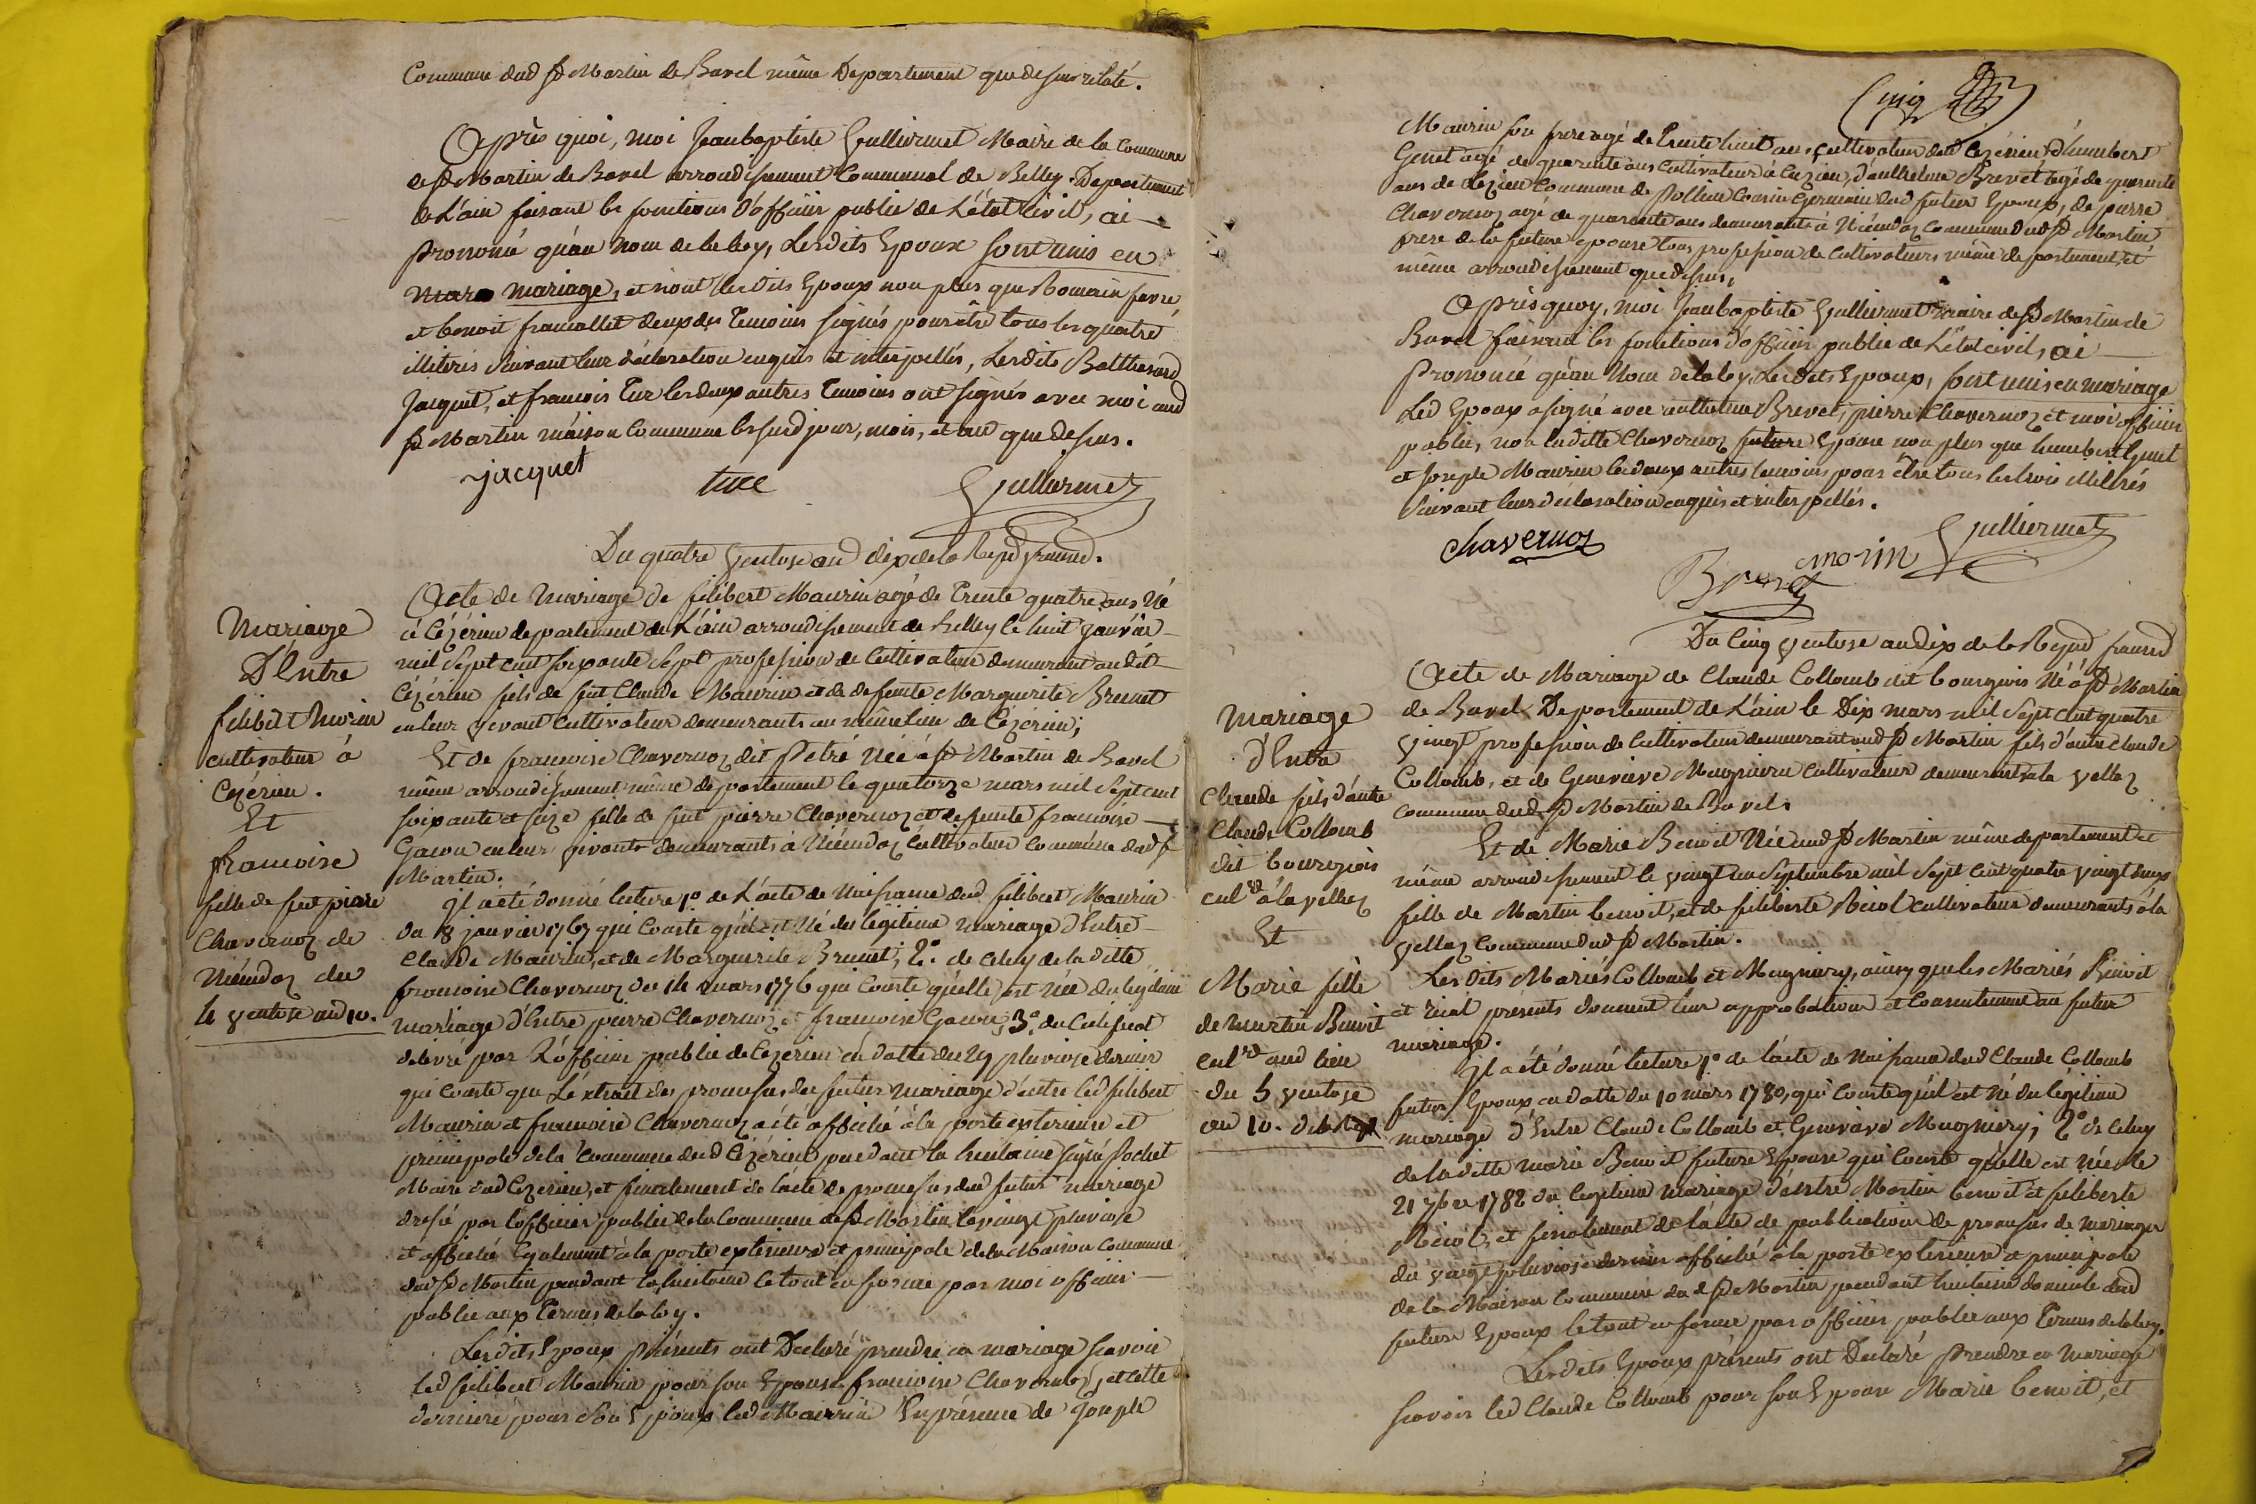 Commune dud St Martin de Bavel même Departement que desus relaté.
Après quoi, moi Jeanbaptiste Gulliermet Maire de la Commune
de St Martin de Bavel arrondisement Communal de Belley Departement
de L'ain faisant les fonctions d'officier public de L'état civil, ai
Prononcé qu'au nom de la loy, Lesdits Epoux sont unis en
mariage, et n'ont lesdits Epoux non plus que Romain favre
et benoit francallet deux des Temoins signés pour être tous les quatre
illiterés suivant leur déclaration enquis et interpellés, Lesdits Balthazard
Jacquet, et francois Tux les deux autres Temoins ont signés avec moi aud
St Martin maison Commune les sud jour, mois, et an que desus.
jacquet
tuce
Gulliermet
Du quatre ventose an dix de la Repud francd.
Acte de Mariage de filibert Maurin agé de Trente quatre ans Né
à Cézérieu departement de L'ain arrondisement de Belley le huit janvier
mil sept cent soixante sept profession de Cultivateur demeurant audit
Cézérieu fils de feu Claude Maurin et de defunte Marguerite Brunet
en leur vivant Cultivateur demeurants au même lieu de Cézérieu;
Et de francoise Chavernoz dit Petré Née à St Martin de Bavel
même arrondisement même departement le quatorze mars mil sept cent
soixante et seize fille de feu pierre Chavernoz et defunte francoise
Gacon en leur vivants demeurants à Niémdoz Cultivateur Commune dud St
Martin.
Il a été donné lecture 1º de L'acte de Naissance dud filibert Maurin
du 8 janvier 1767 qui Conste qu'il est Né du legitime mariage d'Entre
Claude Maurin, et de Marguerite Brunet; 2º. de celuy de la ditte
francoise Chavernoz du 14 mars 1776 qui Conste qu'elle est Née du legitime
mariage d'Entre pierre Chavernoz et francoise Gacon; 3º. du Certificat
delivré par L'officier public de Cezerieu en datte du 29 pluviose dernier
qui Conste que L'extrait des promesses du futur mariage d'entre led filibert
Maurin et francoise Chavernoz a été affiché à la porte exterieure et
principale de la Commune dud Cézérieu pendant la huitaine signé Pochet
Maire dud Cezerieu, et finalement de l'acte de promesses dud futur mariage
dressé par l'officier public de la Commune de St Martin le vingt pluviose
et affiché Egalement à la porte exterieure et principale de la Maison Commune
dud St Martin pendant la huitaine le tout en forme par moi officier
public aux Termes de la loy.
Lesdits Epoux présents ont Declaré prendre en mariage savoir
led filibert Maurin pour son Epouse francoise Chavernoz, et cette
derniere pour son Epoux led Maurin En présence de Joseph
Mariage
D'Entre
filibert Morin
cultivateur à
Cézérieu.
Et
francoise
fille de feu pierre
Chavernoz de
Niémdoz du
4 ventose an 10.
Cinq
Maurin son frere agé de Trente huit ans, Cultivateur dud Cezérieu, d'humbert
Genet agé de quarente ans Cultivateur à Cezérieu, d'anthelme Brevet agé de quarente
ans de Cezieu Commune de Pollieu Cousin Germain dud futur Epoux, de pierre
Chavernoz agé de quarante ans demeurant à Niémdoz Commune dud St Martin
frere de la future epouse tous profession de Cultivateurs même departement, et
même arrondisement que desus,
Après quoy, moi Jeanbaptiste Gulliermet Maire de St Martin de
Bavel faisant les fonctions d'officier public de L'état civil, ai
Prononcé qu'au Nom de la loy, Lesdits Epoux, sont unis en mariage
Led Epoux a signé avec anthelme Brevet, pierre Chavernoz et moi officier
public, non laditte Chavernoz future Epouse non plus que humbert Genet
et Joseph Maurin les deux autres temoins pour être tous les trois illiterés
suivant leur déclaration enquis et interpellés.
chavernoz
morin
Gulliermet
Brevet
Du Cinq ventose an dix de la Repud francd
Acte de Mariage de Claude Collomb dit bourgeois Né à St Martin
de Bavel Departement de L'ain le Dix mars mil sept cent quatre
vingt profession de Cultivateur demeurant aud St Martin fils d'autre Claude
Collomb, et de Genevieve Mugniery Cultivateur demeurant à la vellaz
Commune dud St Martin de Bavel.
Et de Marie Benoit Née aud St Martin même departement et
même arrondisement le vingt un Septembre mil sept cent quatre vingt deux
fille de Martin benoit, et de filiberte Réiol cultivateur demeurants à la
vellaz Commune dud St Martin.
Lesdits Mariés Collomb et Mugniery, ainsy que les Mariés Benoit
et présents donnent leur approbation et Consentement au futur
mariage.
Il a été donné lecture 1º de l'acte de Naissance dud Claude Collomb
futur Epoux en datte du 10 mars 1780, qui Conste qu'il est Né du légitime
mariage d'Entre Claude Collomb et Genevieve Mugniery; 2º de celuy
de laditte marie Benoit future Epouse qui Conste qu'elle est Née le
21 7bre 1782 du legitime mariage d'entre Martin benoit et filiberte
Réiol, et finalement de l'acte de publication de promesses de mariages
du vingt pluviose dernier affiché à la porte exterieure et principale
de la Maison Commune dud St Martin pendant huitaine domicile dud
futurs Epoux le tout en forme par officier public aux Termes de la loy.
Lesdits Epoux présents ont Declaré prendre en mariage
savoir led Claude Collomb pour son Epouse Marie benoit, et
Mariage
d'Entre
Claude fils d'autre
Claude Collomb
dit bourgeois
culr à la vellaz
Et
Marie fille
de martin Benoit
culr aud lieu
du 5 ventose
an 10. de la Rep